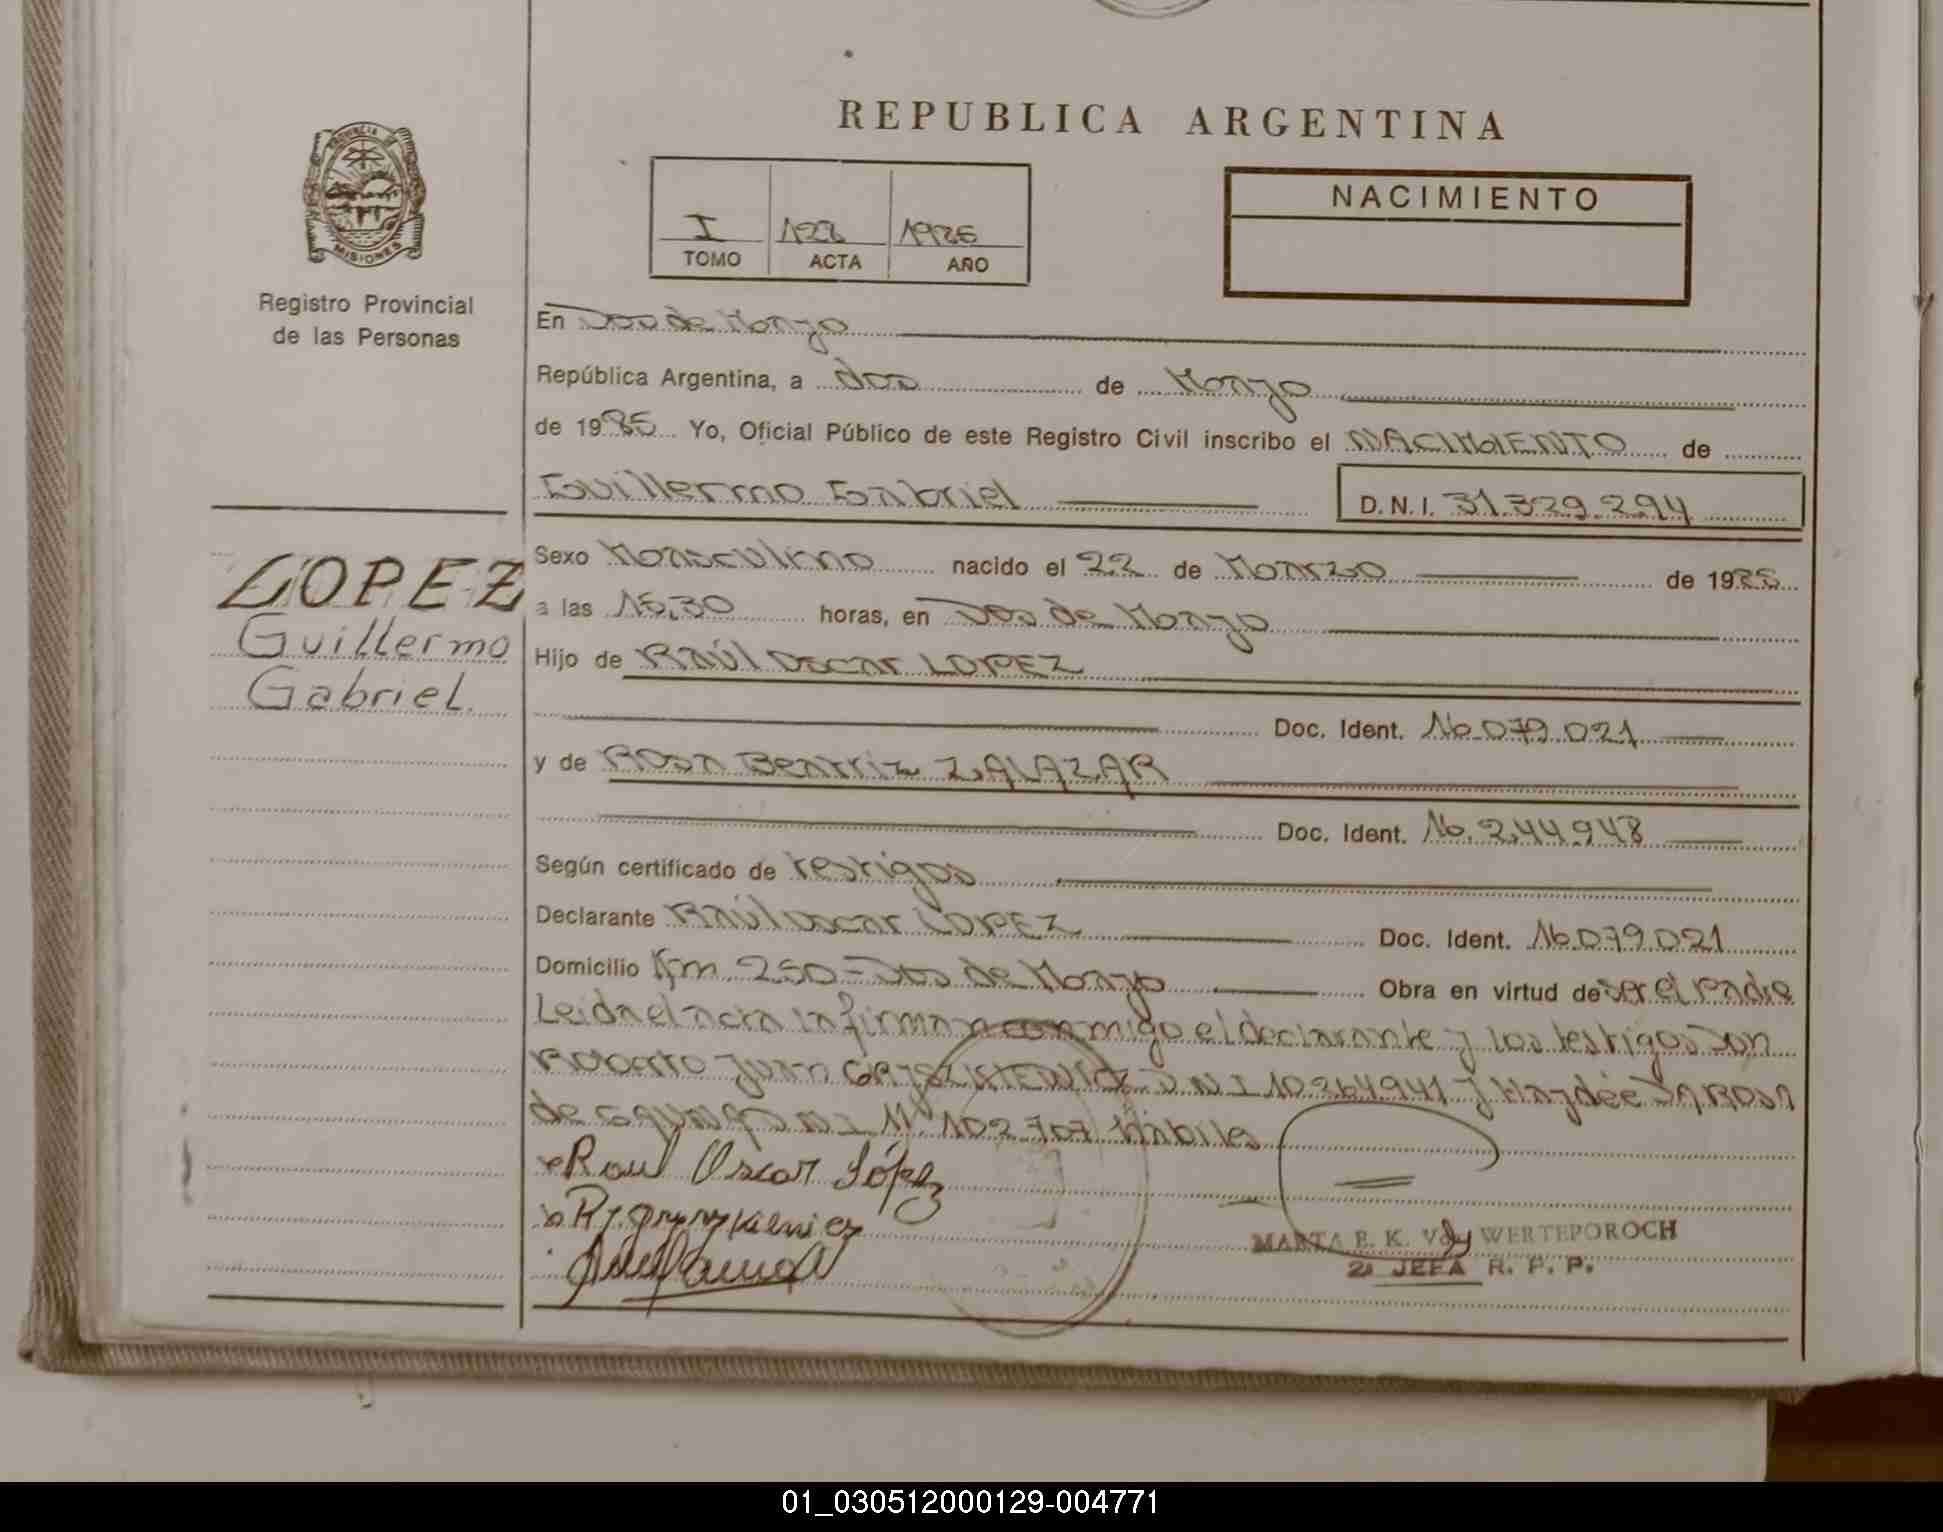 REPUBLICA ARGENTINA
PROVINCIA DE
MISIONES
Registro Provincial
de las Personas
I 1985
TOMO ACTA AÑO
NACIMIENTO
En Dos de Mayo
República Argentina, a dos de Mayo
de 1985 Yo, Oficial Público de este Registro Civil inscribo el NACIMIENTO de
Guillermo Gabriel D.N.I. 31.329.294
LOPEZ
Guillermo
Gabriel.
Sexo Masculino nacido el 22 de Marzo de 1985
a las 15,30 horas, en Dos de Mayo
Hijo de RAÚL OSCAR LOPEZ
Doc. Ident. 16.079.021
y de ROSA BEATRIZ ZALAZAR
Doc. Ident. 16.244.948
Según certificado de testigos
Declarante RAÚL OSCAR LOPEZ Doc. Ident. 16.079.021
Domicilio Km 250 - Dos de Mayo Obra en virtud de ser el Padre
Leida el acta la firman conmigo el declarante y los testigos son
Roberto Juan D N I 10.264.941 y Haydée
de D N I Nº 102.707 hábiles
Raul Oscar López
MARTA E. K. Vda WERTEPOROCH
JEFA R. P. P.
01_030512000129-004771